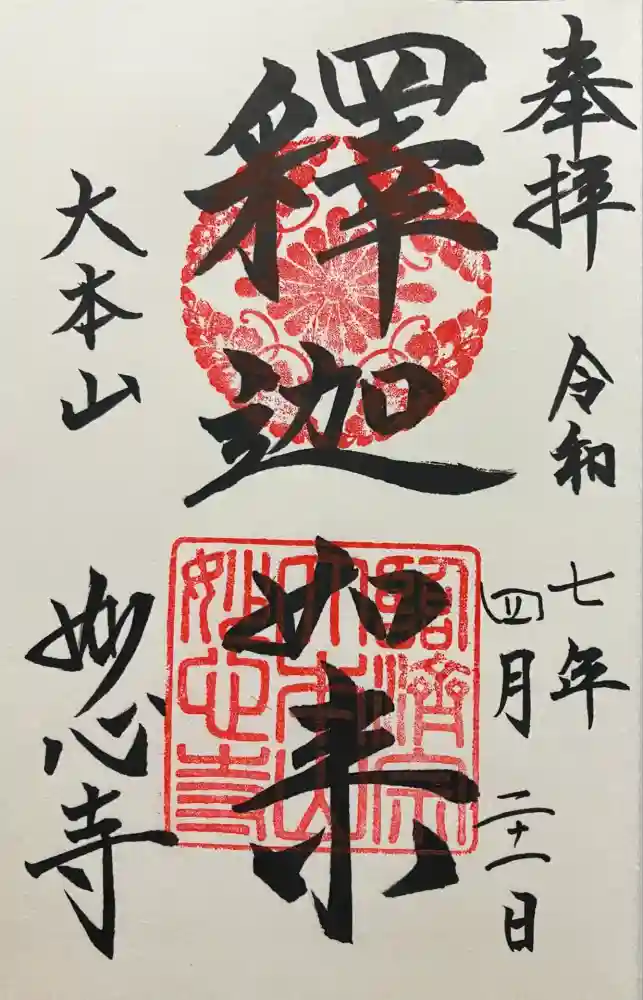 奉拝
令和七年
四月二十一日
釋迦如来
臨済宗
大本山
妙心寺
大本山
妙心寺